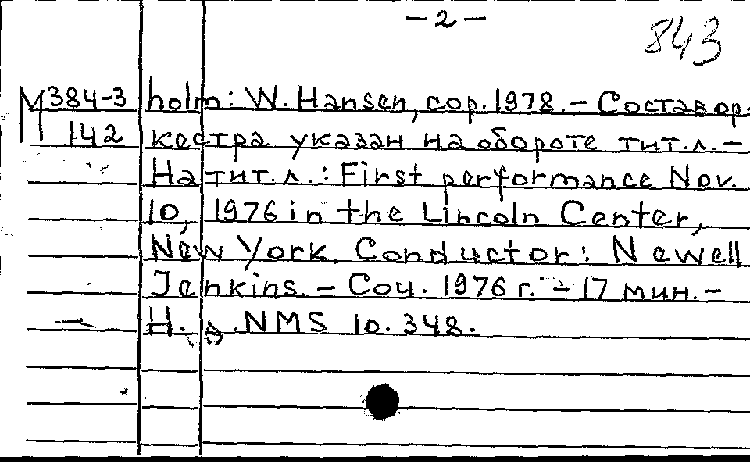 - 2 -
843
М 384-3 holm: W. Hansen, cop. 1978. - Состав ор-
142 кестра указан на обороте тит. л. -
На тит. л.: First performance Nov.
10, 1976 in the Lincoln Center,
New York. Conductor: Newell
Jenkins. - Соч. 1976 г. - 17 мин. -
Н. д. NMS 10.348.